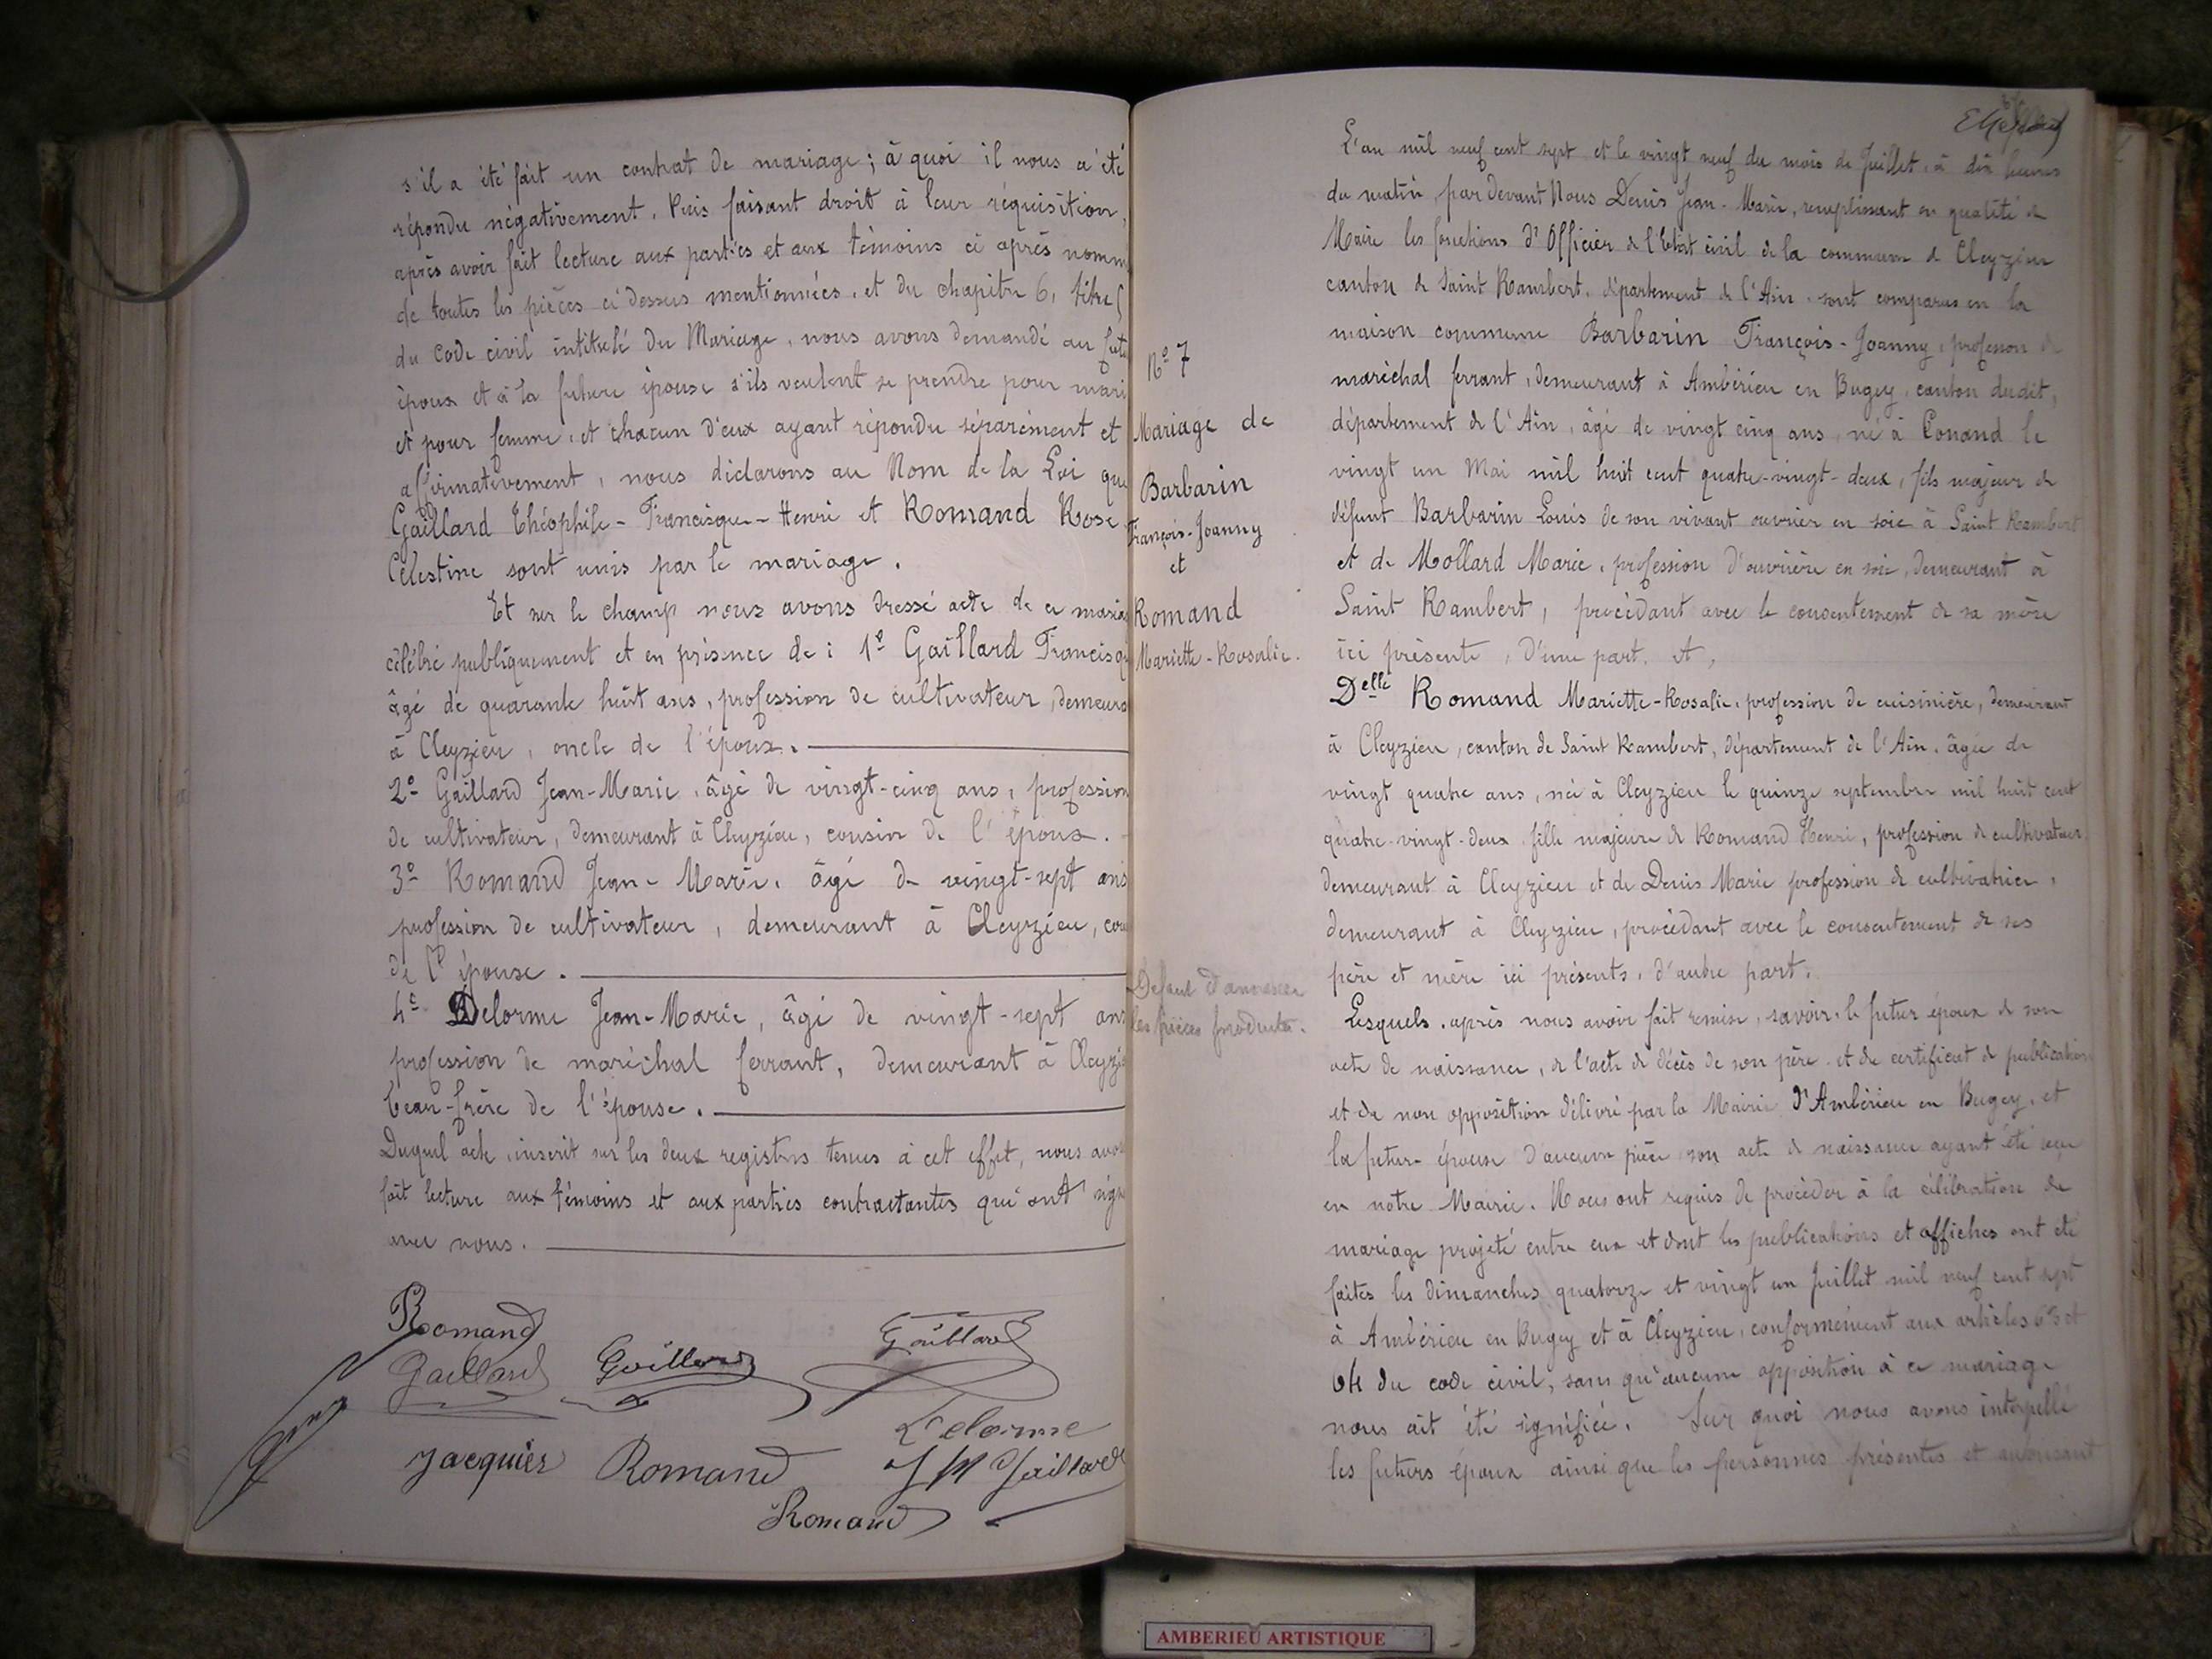 s'il a été fait un contrat de mariage ; à quoi il nous a été
répondu négativement. Puis faisant droit à leur réquisition,
après avoir fait lecture aux parties et aux témoins ci après nomm
de toutes les pièces ci dessus mentionnées, et du chapitre 6, titre 5
du Code civil intitulé du Mariage, nous avons demandé au futu
époux et à la future épouse s'ils veulent se prendre pour mari
et pour femme, et chacun d'eux ayant répondu séparément et
affirmativement, nous déclarons au Nom de la Loi que
Gaillard Théophile - Francisque - Henri et Romand Rose
Célestine sont unis par le mariage.
Et sur le champ nous avons dressé acte de ce mariag
célébré publiquement et en présence de : 1º Gaillard Francisqu
âgé de quarante huit ans, profession de cultivateur, demeura
à Cleyzieu, oncle de l'époux.
2º Gaillard Jean-Marie, âgé de vingt-cinq ans, profession
de cultivateur, demeurant à Cleyzieu, cousin de l'époux.
3º Romand Jean - Marie, âgé de vingt-sept ans
profession de cultivateur, demeurant à Cleyzieu, cou
de l'épouse.
4º Delorme Jean-Marie, âgé de vingt-sept ans
profession de maréchal ferrant, demeurant à Cleyzi
beau-frère de l'épouse.
Duquel acte, inscrit sur les deux registres tenus à cet effet, nous avo
fait lecture aux témoins et aux parties contractantes qui ont sign
avec nous.
Romand
Gaillard Gaillard Gaillard
Delorme
Jacquier Romand J M Gaillard
Romand
Nº 7
Mariage de
Barbarin
François-Joanny
et
Romand
Mariette-Rosalie.
Défaut d'annexer
les pièces produites.
L'an mil neuf cent sept et le vingt neuf du mois de Juillet, à dix heures
du matin, par devant Nous Denis Jean - Marie, remplissant en qualité de
Maire les fonctions d'Officier de l'Etat civil de la commune de Cleyzieu
canton de Saint Rambert, département de l'Ain, sont comparus en la
maison commune Barbarin François-Joanny, profession de
maréchal ferrant, demeurant à Ambérieu en Bugey, canton dudit,
département de l'Ain, âgé de vingt cinq ans, né à Conand le
vingt un Mai mil huit cent quatre-vingt-deux, fils majeur de
défunt Barbarin Louis de son vivant ouvrier en soie à Saint Rambert
et de Mollard Marie, profession d'ouvrière en soie, demeurant à
Saint Rambert, procédant avec le consentement de sa mère
ici présente, d'une part, et,
Delle Romand Mariette-Rosalie, profession de cuisinière, demeurant
à Cleyzieu, canton de Saint Rambert, département de l'Ain, âgée de
vingt quatre ans, née à Cleyzieu le quinze septembre mil huit cent
quatre-vingt-deux, fille majeure de Romand Henri, profession de cultivateur
demeurant à Cleyzieu et de Denis Marie profession de cultivatrice,
demeurant à Cleyzieu, procédant avec le consentement de ses
père et mère ici présents, d'autre part.
Lesquels, après nous avoir fait remise, savoir, le futur époux de son
acte de naissance, de l'acte de décès de son père et de certificat de publication
et de non opposition délivré par la Mairie d'Ambérieu en Bugey, et
la future épouse d'aucune pièce, son acte de naissance ayant été reçu
en notre Mairie. Nous ont requis de procéder à la célébration de
mariage projeté entre eux et dont les publications et affiches ont été
faites les dimanches quatorze et vingt un Juillet mil neuf cent sept
à Ambérieu en Bugey et à Cleyzieu, conformément aux articles 63 et
64 du code civil, sans qu'aucune opposition à ce mariage
nous ait été signifiée. Sur quoi nous avons interpellé
les futurs époux ainsi que les personnes présentes et autorisant
AMBERIEU ARTISTIQUE